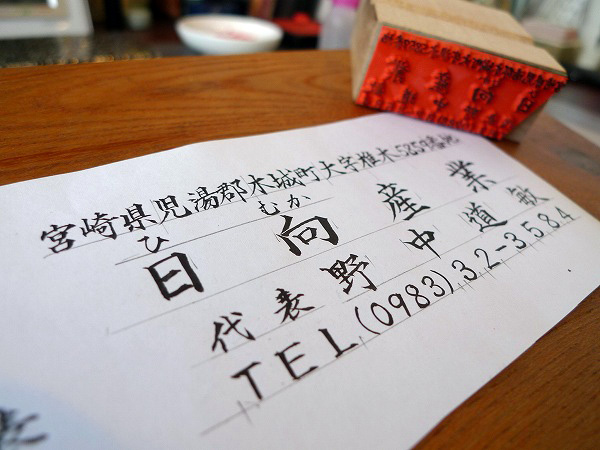 宮崎県児湯郡木城町大字椎木5259番地
ひむか
日向産業
代表 野中道敏
TEL(0983)32-3584